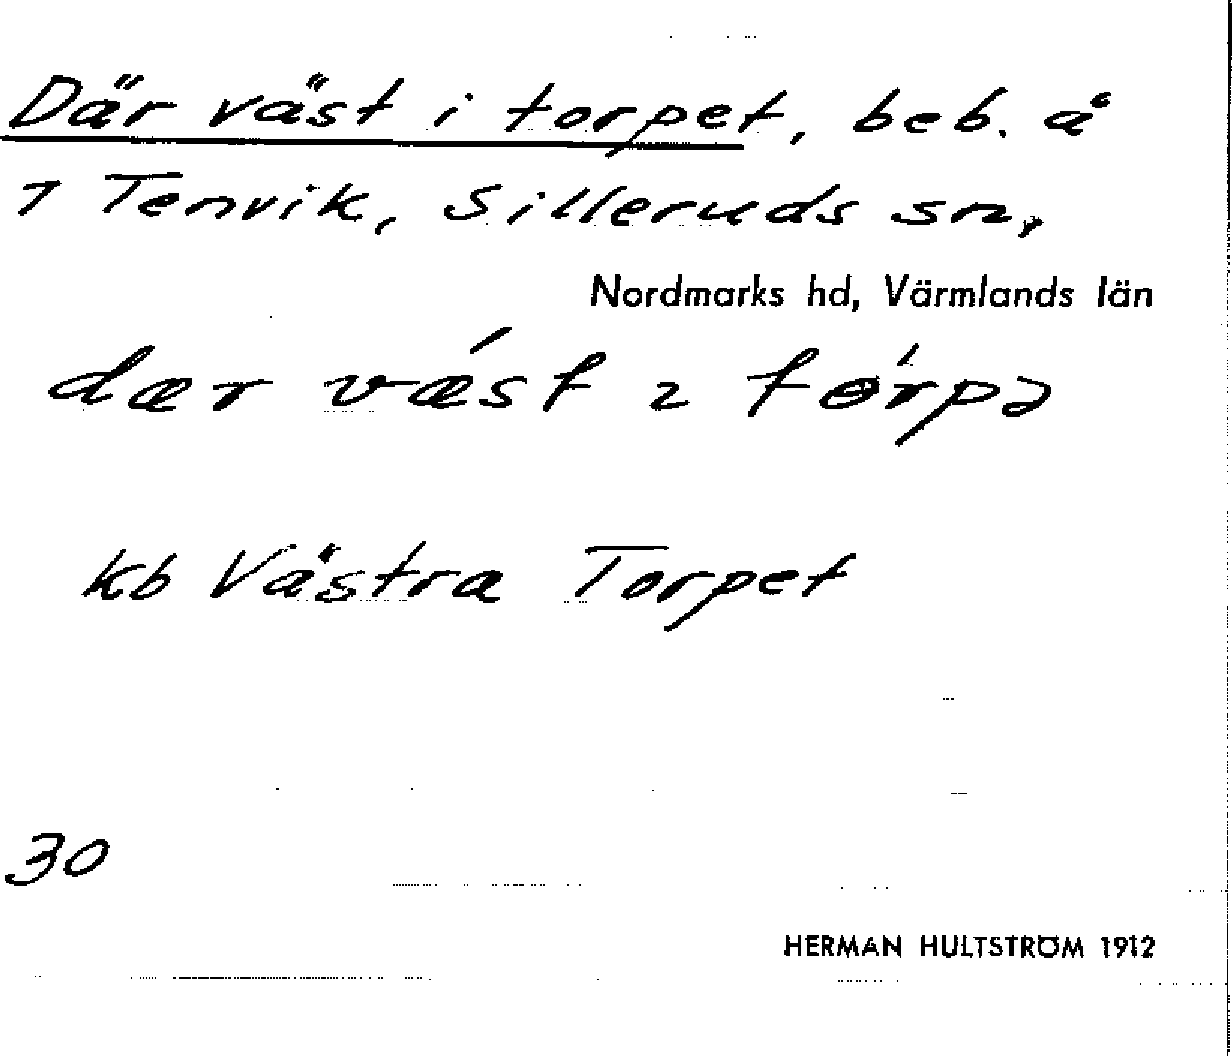 Där väst i torpet, beb. å
1 Tenvik, Silleruds sn,
Nordmarks hd, Värmlands län
dær vǽst ɩ tɵ́rpə
kb Västra Torpet
30
HERMAN HULTSTRÖM 1912